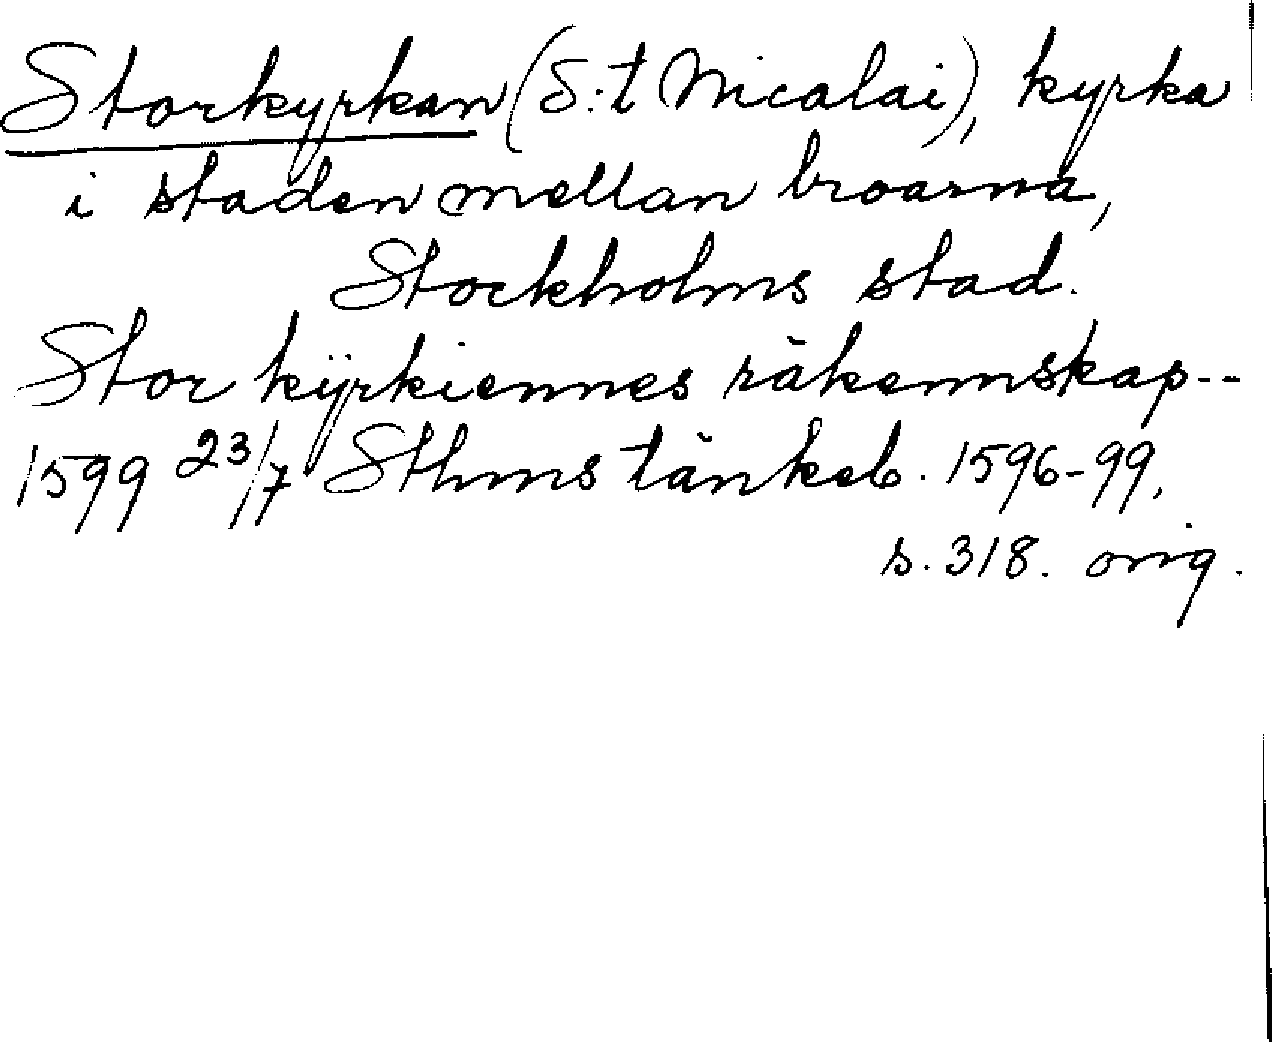 Storkyrkan (S:t Nicolai), kyrka
i staden mellan broarna,
Stockholms stad.
Stor kÿrkiennes räkennskap--
1599 23/7 Sthms tänkeb. 1596-99,
s. 318. orig.